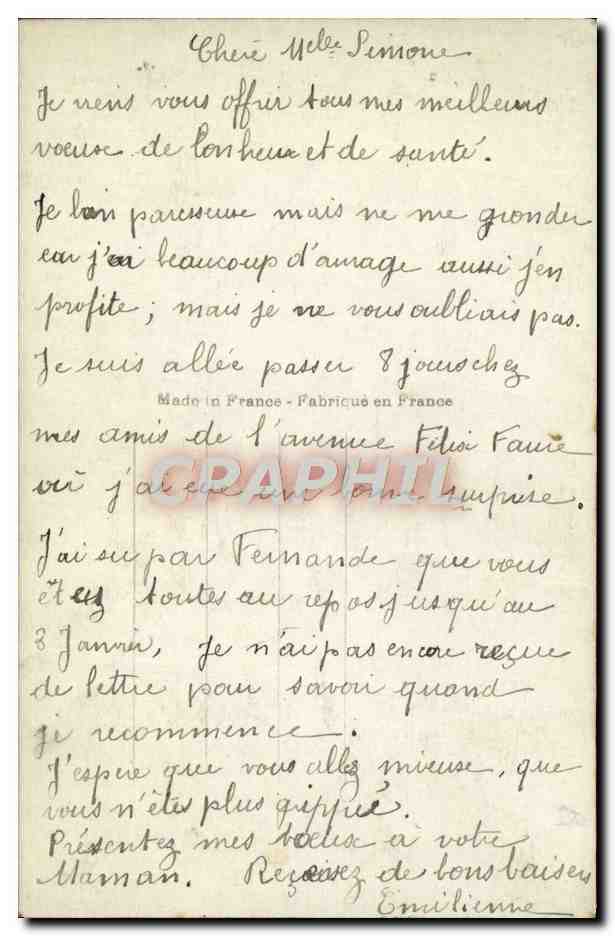 Chere Melle Simone
Je viens vous offrir tous mes meilleurs
voeuxe de bonheur et de santé.
Je paresseuse mais ne me gronder
car j'ai beaucoup d'aurage aussi j'en
profite ; mais je ne vous oubliais pas.
Je suis allée passer 8 jours chez
Made in France - Fabriqué en France
mes amis de l'avenue Félix Faure
où j'ai eue un bonne surprise.
CRAPHIL
J'ai su par Fernande que vous
êtes toutes au repos jusqu'au
3 Janvier, je n'ai pas encore reçue
de lettre pour savoir quand
je recommence.
J'espere que vous allez mieuse, que
vous n'êtes plus grippé.
Présentez mes voeux à votre
Maman. Recevez de bons baisers
Emilienne